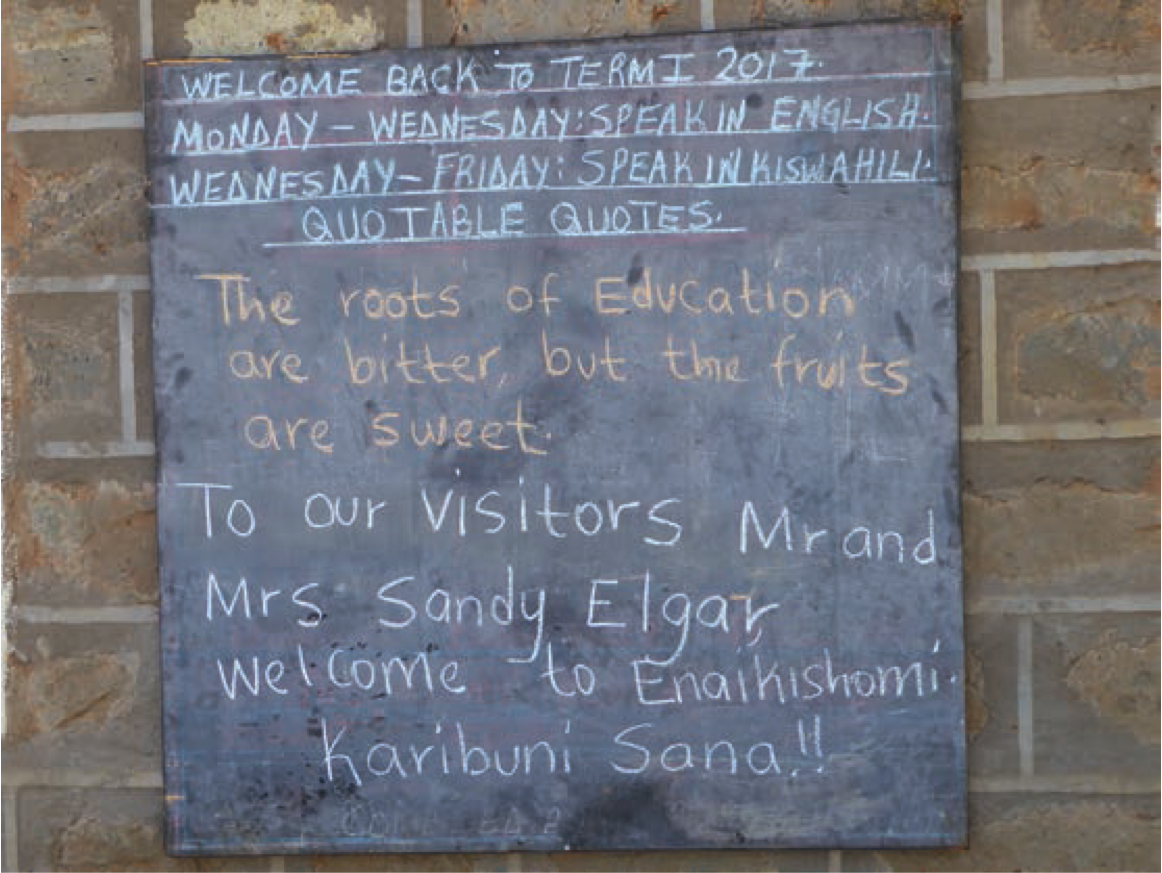 WELCOME BACK TO TERM I 2017.
MONDAY – WEDNESDAY: SPEAK IN ENGLISH.
WEDNESDAY – FRIDAY: SPEAK IN KISWAHILI.
QUOTABLE QUOTES.
The roots of Education
are bitter, but the fruits
are sweet.
To our visitors Mr and
Mrs Sandy Elgar,
Welcome to Enaikishomi.
Karibuni Sana!!